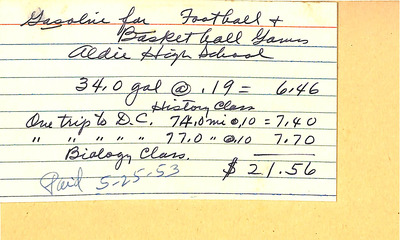 Gasoline for Football &
Basket ball Games
Aldie High School
34.0 gal @ .19 = 6.46
History Class
One trip to D.C. 74.0 mi @.10 = 7.40
" " " " " 77.0 " @.10 7.70
Biology Class.
$ 21.56
Paid 5-25-53